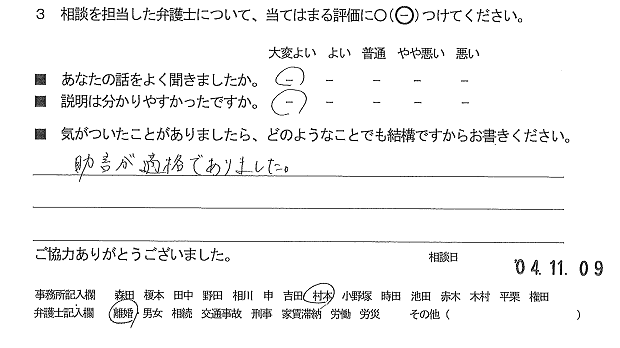 3 相談を担当した弁護士について、当てはまる評価に○(－)つけてください。
大変よい よい 普通 やや悪い 悪い
■ あなたの話をよく聞きましたか。 － － － － －
■ 説明は分かりやすかったですか。 － － － － －
■ 気がついたことがありましたら、どのようなことでも結構ですからお書きください。
助言が適格でありました。
ご協力ありがとうございました。
相談日 '04.11.09
事務所記入欄 森田 榎本 田中 野田 相川 申 吉田 村木 小野塚 時田 池田 赤木 木村 平栗 権田
弁護士記入欄 離婚・男女 相続 交通事故 刑事 家賃滞納 労働 労災 その他( )